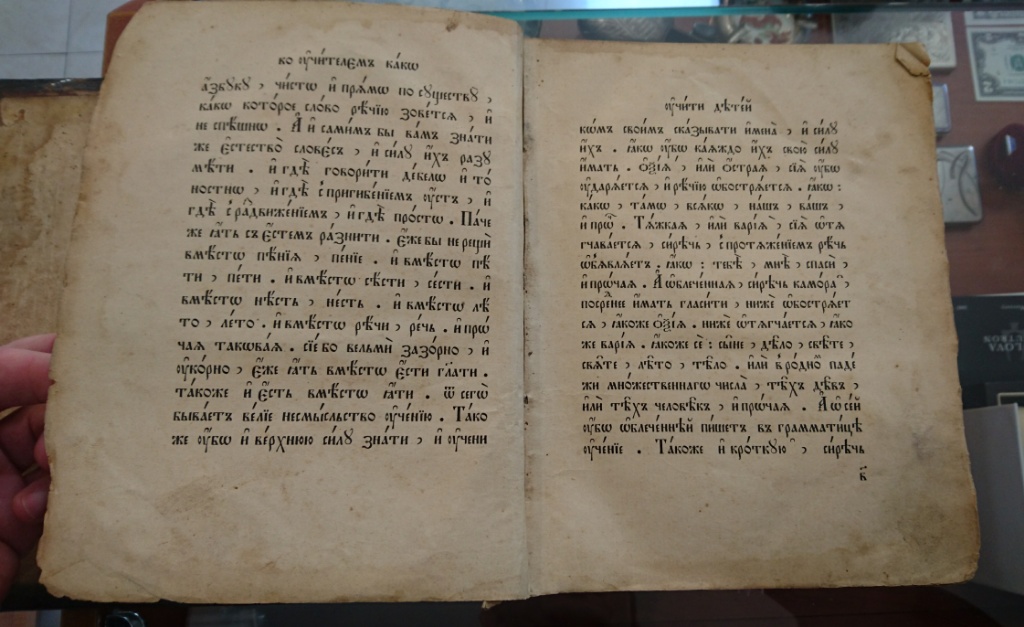 ко ᲂу҆чи́телемъ ка́кѡ
а҆́збꙋкꙋ, чи́стѡ и҆ прѧ́мѡ по сꙋществꙋ̀,
ка́кѡ которое сло́во рѣ́чїю зове́тсѧ, и҆
не спѣ́шнѡ. А҆ и҆ самимъ бы ва́мъ зна́ти
же є҆стество̀ слове́съ, и҆ си́лꙋ и҆́хъ разꙋ
мѣ́ти. и҆ гдѣ̀ говори́ти де́белѡ и҆ то́
ностнѡ, и҆ гдѣ̀ с̾ пригибе́нїемъ ᲂу҆стъ, и҆
гдѣ̀ с̾ раздвиже́нїемъ, и҆ гдѣ̀ про́стѡ. Па́че
же ꙗ҆́ть съ є҆́стемъ ра́знити. є҆́же бы не рещѝ
вмѣ́стѡ пѣ́нїѧ, пе́нїе. и҆ вмѣ́стѡ пѣ́
ти, пе́ти. и҆ вмѣ́стѡ сѣ́сти, се́сти. и҆
вмѣ́стѡ нѣ́сть, не́сть. и҆ вмѣ́стѡ лѣ́
то, ле́то. и҆ вмѣ́стѡ рѣ́чи, ре́чь. и҆ прѡ́
чаѧ такѡва́ѧ. сїе́ бо вельмѝ зазо́рно, и҆
ᲂу҆ко́рно, є҆́же ꙗ҆́ть вмѣ́стѡ є҆́сти гл҃ати.
та́коже и҆ є҆́сть вмѣ́стѡ ꙗ҆́ти. ѿ сегѡ̀
быва́етъ ве́лїе несмы́сльство ᲂу҆че́нїю. Та́ко
же ᲂу҆́бѡ и҆ ве́рхнюю си́лꙋ зна́ти, и҆ ᲂу҆чени
ᲂу҆чи́ти дѣте́й
кѡ́мъ свои́мъ ска́зывати и҆мена̀, и҆ си́лꙋ
и҆́хъ. ꙗ҆́кѡ ᲂу҆́бѡ ка́ѧждо и҆́хъ свою̀ си́лꙋ
и҆́мать. Ѻ҆ѯі́ѧ, и҆лѝ ѻ҆́страѧ, сїѧ̀ ᲂу҆́бѡ
ᲂу҆дарѧ́етсѧ, и҆ рѣ́чїю ѡ҆бострѧ́етсѧ. ꙗ҆́кѡ:
ка́кѡ, та́мѡ, всѧ́кѡ, на́шъ, ва́шъ,
и҆ прѡ́ч. Тѧ́жкаѧ, и҆лѝ варі́ѧ, сїѧ̀ ѡ҆тѧ
гчава́етсѧ, си́рѣчь, с̾ протѧже́нїемъ рѣ́чь
ѡ҆б̾ѧвлѧ́етъ. ꙗ҆́кѡ: тебѣ̀, мнѣ̀, спасѝ,
и҆ прѡ́чаѧ. А҆ ѡ҆блече́ннаѧ, си́рѣчь камо́ра ̑,
посре́дне и҆́мать гласи́ти, ниже́ ѡ҆бострѧ́ет
сѧ, ꙗ҆́коже ѻ҆ѯі́ѧ. ниже́ ѡ҆тѧгча́етсѧ, ꙗ҆́ко
же варі́ѧ. ꙗ҆́коже се́: сы́не, дѣ́ло, свѣ́те,
свѧ́те, лѣ́то, тѣ́ло. и҆лѝ в̾ ро́днѡ паде
жи мно́жественнагѡ числа̀, тѣ́хъ дѣ́въ,
и҆лѝ тѣ́хъ человѣ́къ, и҆ прѡ́чаѧ. А҆ ѡ҆ се́й
ᲂу҆́бѡ ѡ҆блече́ннѣй пи́шетъ въ грамматі́цѣ
ᲂу҆че́нїе. Та́коже и҆ кро́ткꙋю ̆, си́рѣчь
в҃